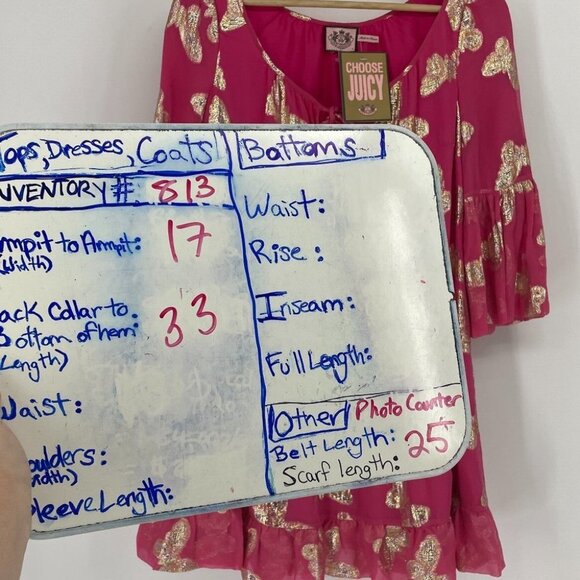 CHOOSE
JUICY
Tops, Dresses, Coats
NVENTORY # 813
mpit to Armpit: 17
(Width)
ack Collar to
Bottom of hem: 33
Length)
Waist:
oulders:
idth)
leeve Length:
Bottoms
Waist:
Rise:
Inseam:
Full Length:
Other Photo Counter
Belt Length: 25
Scarf length: